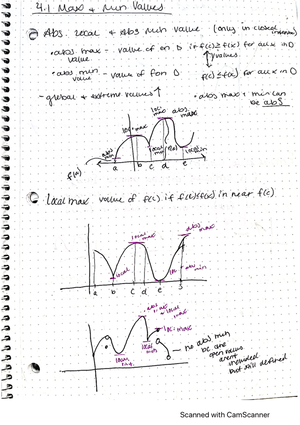 4.1 Max & Min Values
Abs. local & Abs min value (only in closed
• abs max - value of on D if f(c) ≥ f(x) for all x in D
value
values
• abs min - value of f on D
value
f(c) ≤ f(x) for all x in D
- global & extreme values ↑
• abs max & min can
be abs
loc max
abs. max
f(a)
a b c d e
Local max value of f(c) if f(c) ≥ f(x) in near f(c)
local max
abs max
local
loc
abs min
a b c d e
local
max
loc. max
local
min
no abs min
bc the
open values
aren't
included
but still defined
Scanned with CamScanner